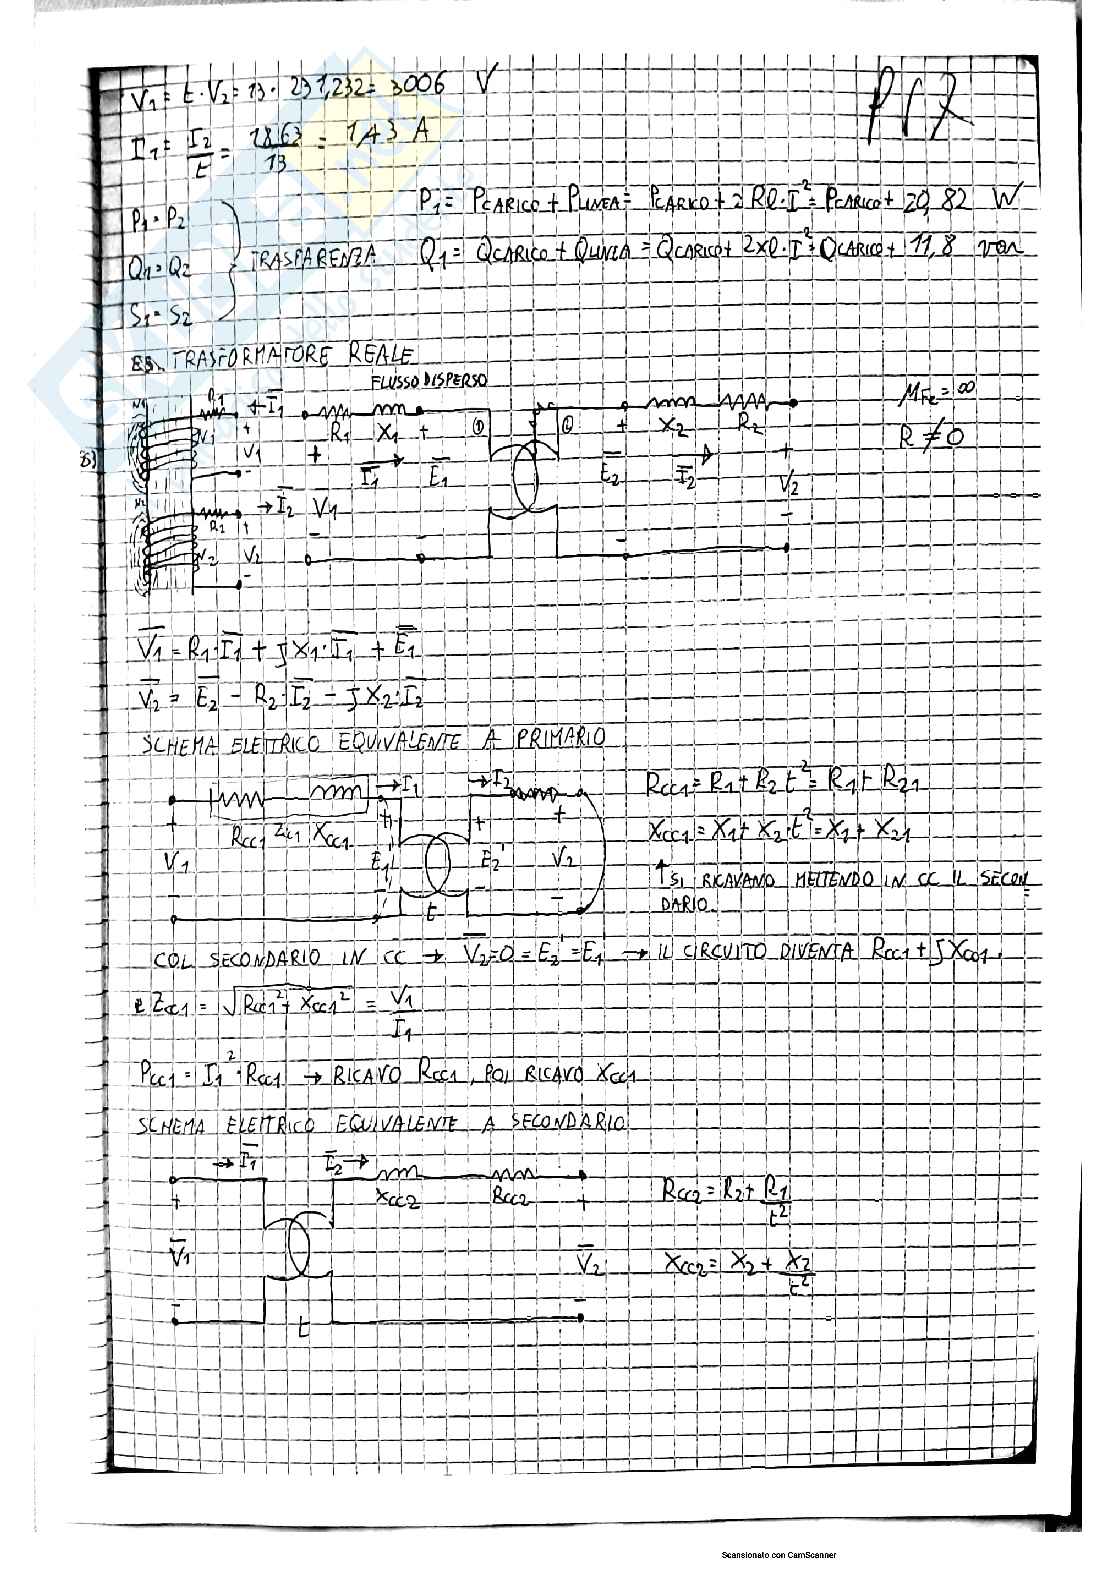 V1 = t·V2 = 13 · 231,232 = 3006 V
I1 = I2/t = 18,63/13 = 1,43 A
P1 = P2
Q1 = Q2
S1 = S2
TRASPARENZA
P1 = PCARICO + PLINEA = PCARICO + 2Rl·I² = PCARICO + 20,82 W
Q1 = QCARICO + QLINEA = QCARICO + 2Xl·I² = QCARICO + 11,8 var
ES. TRASFORMATORE REALE
FLUSSO DISPERSO
N1 R1 I1 V1 + -
N2 R2 I2 V2 + -
8)
R1 X1 + I1 E1 V1 -
+ X2 R2 E2 I2 V2 -
MFe = ∞
R ≠ 0
V1 = R1·I1 + JX1·I1 + E1
V2 = E2 - R2·I2 - JX2·I2
SCHEMA ELETTRICO EQUIVALENTE A PRIMARIO
I1 I2
RCC1 XCC1
V1 E1' E2' V2
t
RCC1 = R1 + R2t² = R1 + R21
XCC1 = X1 + X2·t² = X1 + X21
↑ SI RICAVANO METTENDO IN CC IL SECON
DARIO.
COL SECONDARIO IN CC → V2=0=E2'=E1 → IL CIRCUITO DIVENTA RCC1 + JXCC1.
e ZCC1 = √RCC1² + XCC1² = V1/I1
PCC1 = I1²·RCC1 → RICAVO RCC1, POI RICAVO XCC1
SCHEMA ELETTRICO EQUIVALENTE A SECONDARIO
→ I1 I2 →
+ XCC2 RCC2 +
V1 V2
- t -
RCC2 = R2 + R1/t²
XCC2 = X2 + X2/t²
Scansionato con CamScanner